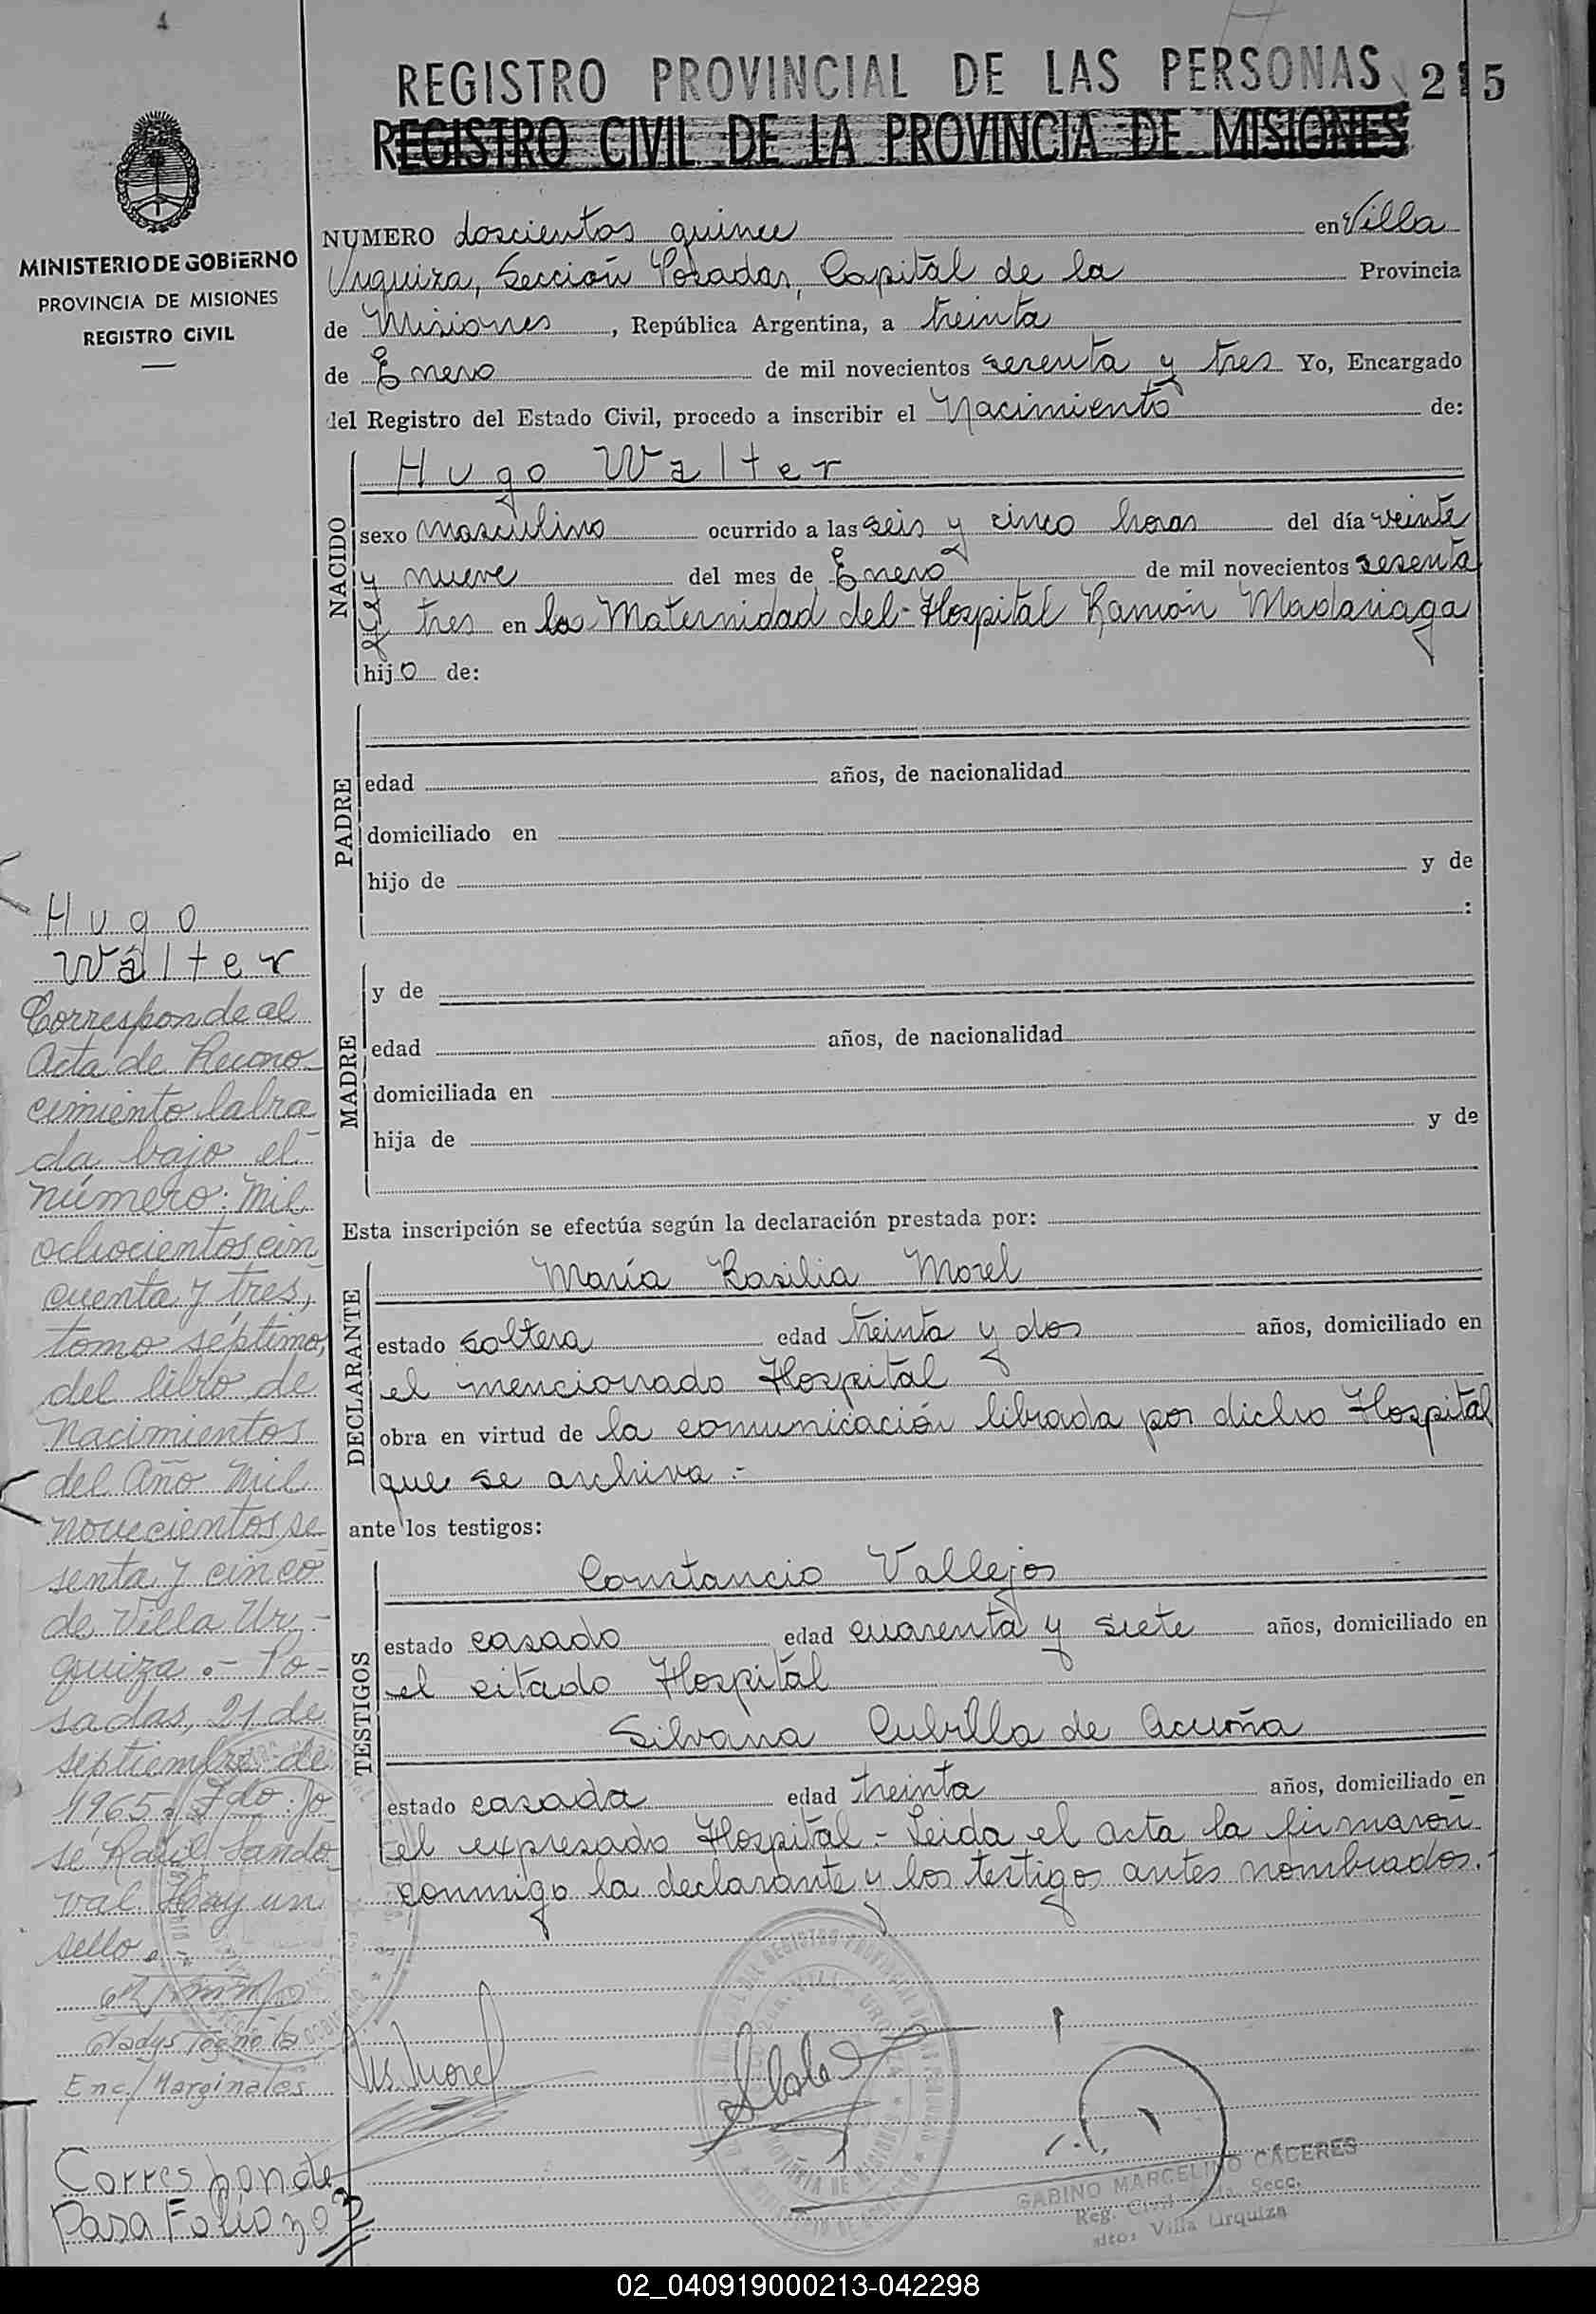 REGISTRO PROVINCIAL DE LAS PERSONAS 215
REGISTRO CIVIL DE LA PROVINCIA DE MISIONES
MINISTERIO DE GOBIERNO
PROVINCIA DE MISIONES
REGISTRO CIVIL
NUMERO doscientos quince en Villa
Urquiza, Sección Posadas, Capital de la Provincia
de Misiones, República Argentina, a treinta
de Enero de mil novecientos sesenta y tres Yo, Encargado
del Registro del Estado Civil, procedo a inscribir el Nacimiento de:
NACIDO
Hugo Walter
sexo masculino ocurrido a las seis y cinco horas del día veinte
y nueve del mes de Enero de mil novecientos sesenta
y tres en la Maternidad del Hospital Ramón Madariaga
hijo de:
PADRE
edad años, de nacionalidad
domiciliado en
hijo de y de
:
MADRE
y de
edad años, de nacionalidad
domiciliada en
hija de y de
Esta inscripción se efectúa según la declaración prestada por:
DECLARANTE
María Basilia Morel
estado soltera edad treinta y dos años, domiciliado en
el mencionado Hospital
obra en virtud de la comunicación librada por dicho Hospital
que se archiva.-
ante los testigos:
TESTIGOS
Constancio Vallejos
estado casado edad cuarenta y siete años, domiciliado en
el citado Hospital
Silvana Cubilla de Acuña
estado casada edad treinta años, domiciliado en
el expresado Hospital.- Leida el acta la firmaron
conmigo la declarante y los testigos antes nombrados.-
Hugo
Walter
Corresponde al
Acta de Recono-
cimiento labra
da bajo el
número: mil
ochocientos cin
cuenta y tres,
tomo séptimo,
del libro de
Nacimientos
del Año mil
novecientos se-
senta y cinco
de Villa Ur-
quiza.- Po-
sadas, 21 de
septiembre de
1965. Fdo. Jo
sé Raúl Sando-
val. Hay un
sello.-
Gladys Togno la
Enc/Marginales
Corresponde
Para Folio 203
M B. Morel
GABINO MARCELINO CÁCERES
Reg. Civil Secc.
sito: Villa Urquiza
02_040919000213-042298